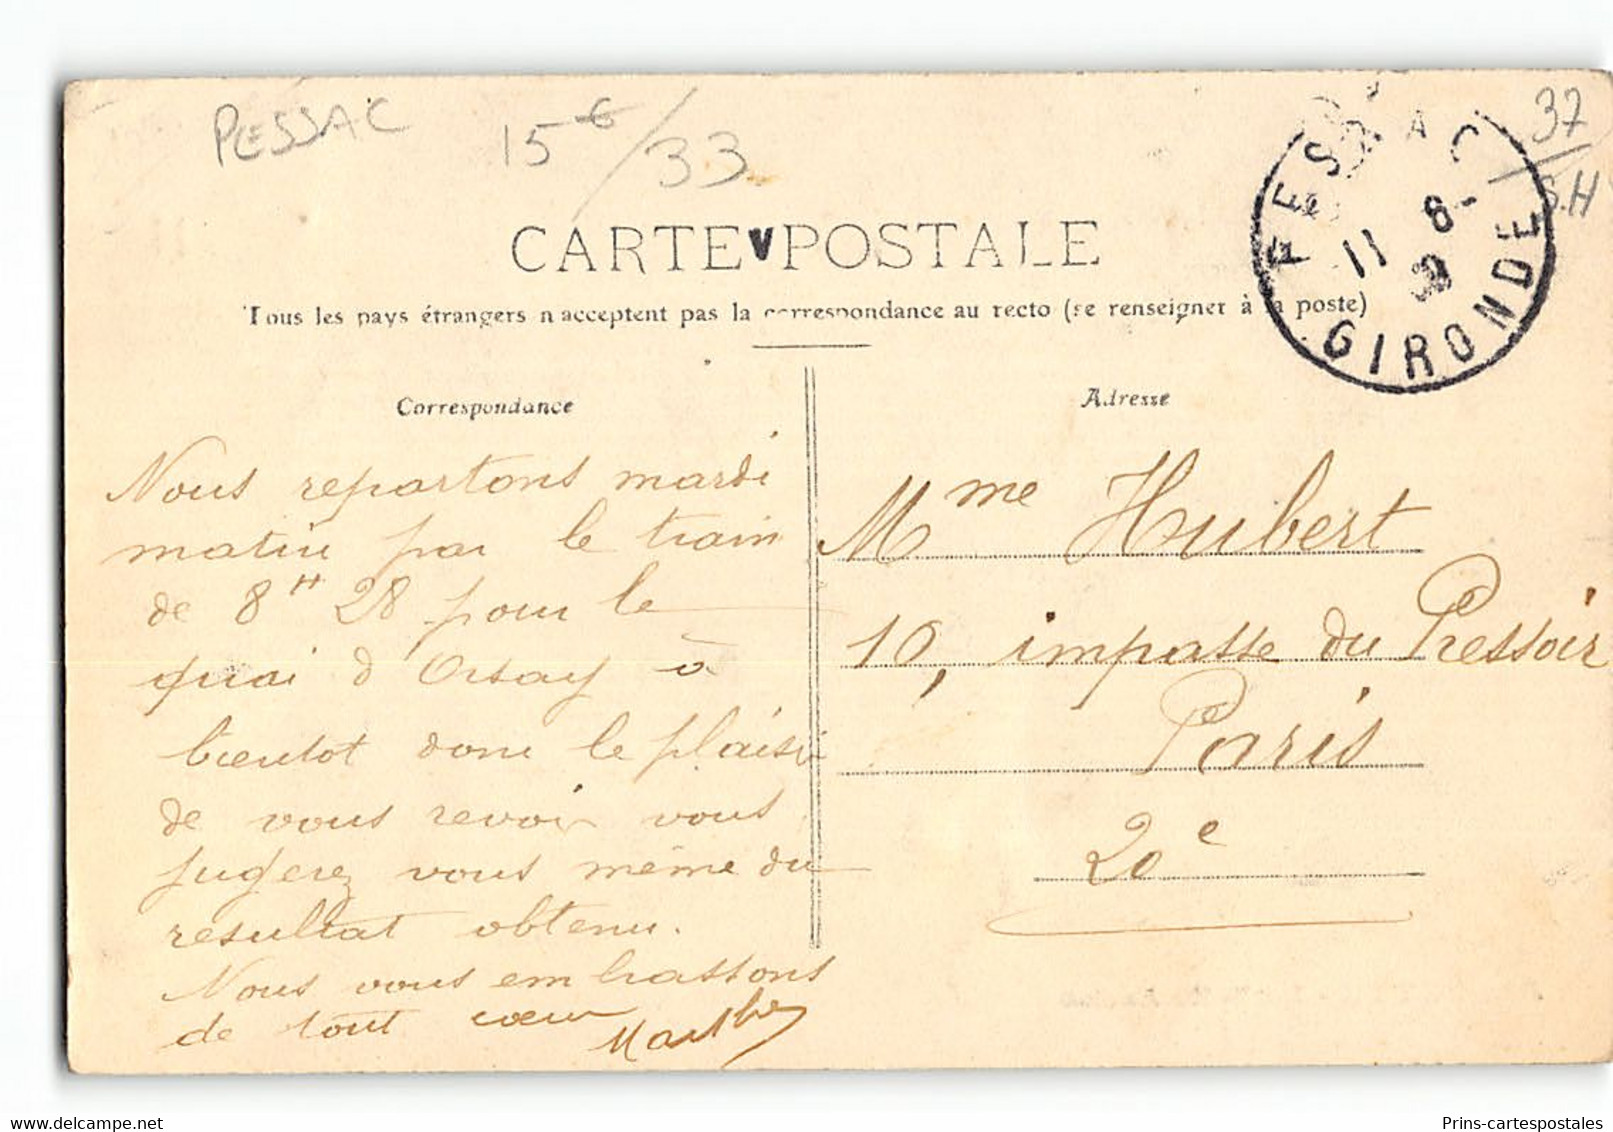 PESSAC
15€/33
37
S.H
PESSAC
11 8
GIRONDE
CARTE POSTALE
Tous les pays étrangers n'acceptent pas la correspondance au recto (se renseigner à la poste)
Correspondance
Nous repartons mardi
matin par le train
de 8H 28 pour le
quai d Orsay à
bientot donc le plaisir
de vous revoir vous
jugerez vous même du
resultat obtenu.
Nous vous embrassons
de tout coeur Marthe
Adresse
Mme Hubert
10, impasse du Pressoir
Paris
20e
Prins-cartespostales